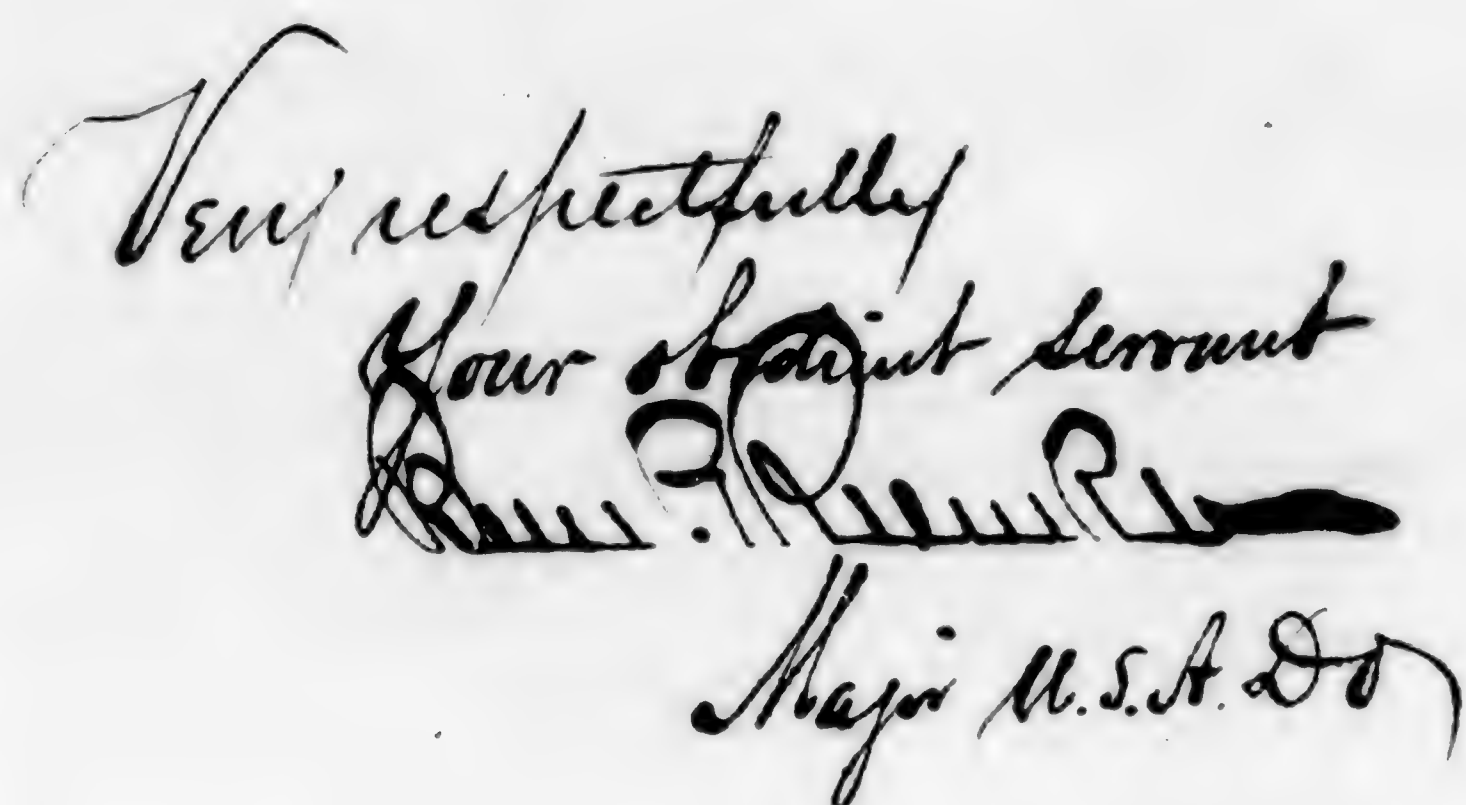 Very respectfully
Your obedient servant
Major U.S.A.